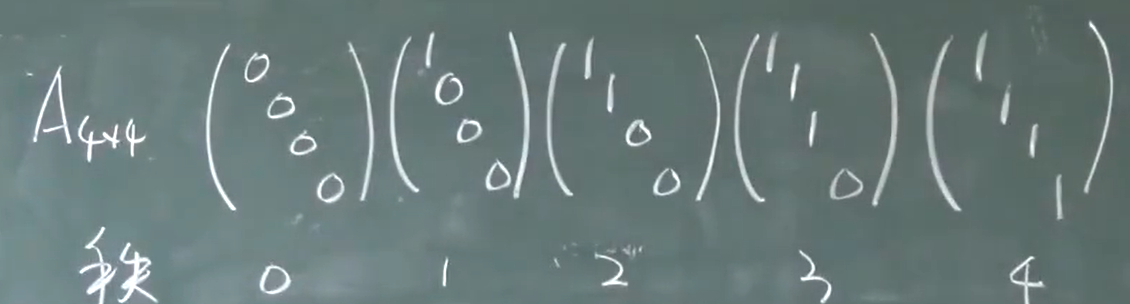 A₄ₓ₄ (0 0 0 0) (1 0 0 0) (1 1 0 0) (1 1 1 0) (1 1 1 1)
秩 0 1 2 3 4